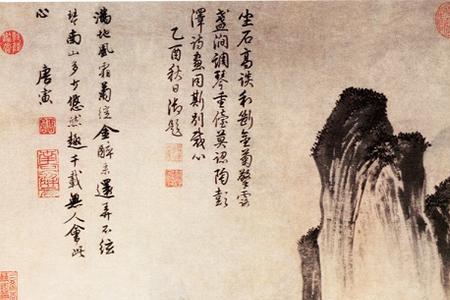 坐石高談和斷金菊擎雲
盞澗調琴重莫認陶彭
澤詩畫因斯別裁心
乙酉秋日御題
滿地風霜菊綻金醉來還弄不絃
琴南山多少悠然趣千載無人會此
心
唐寅